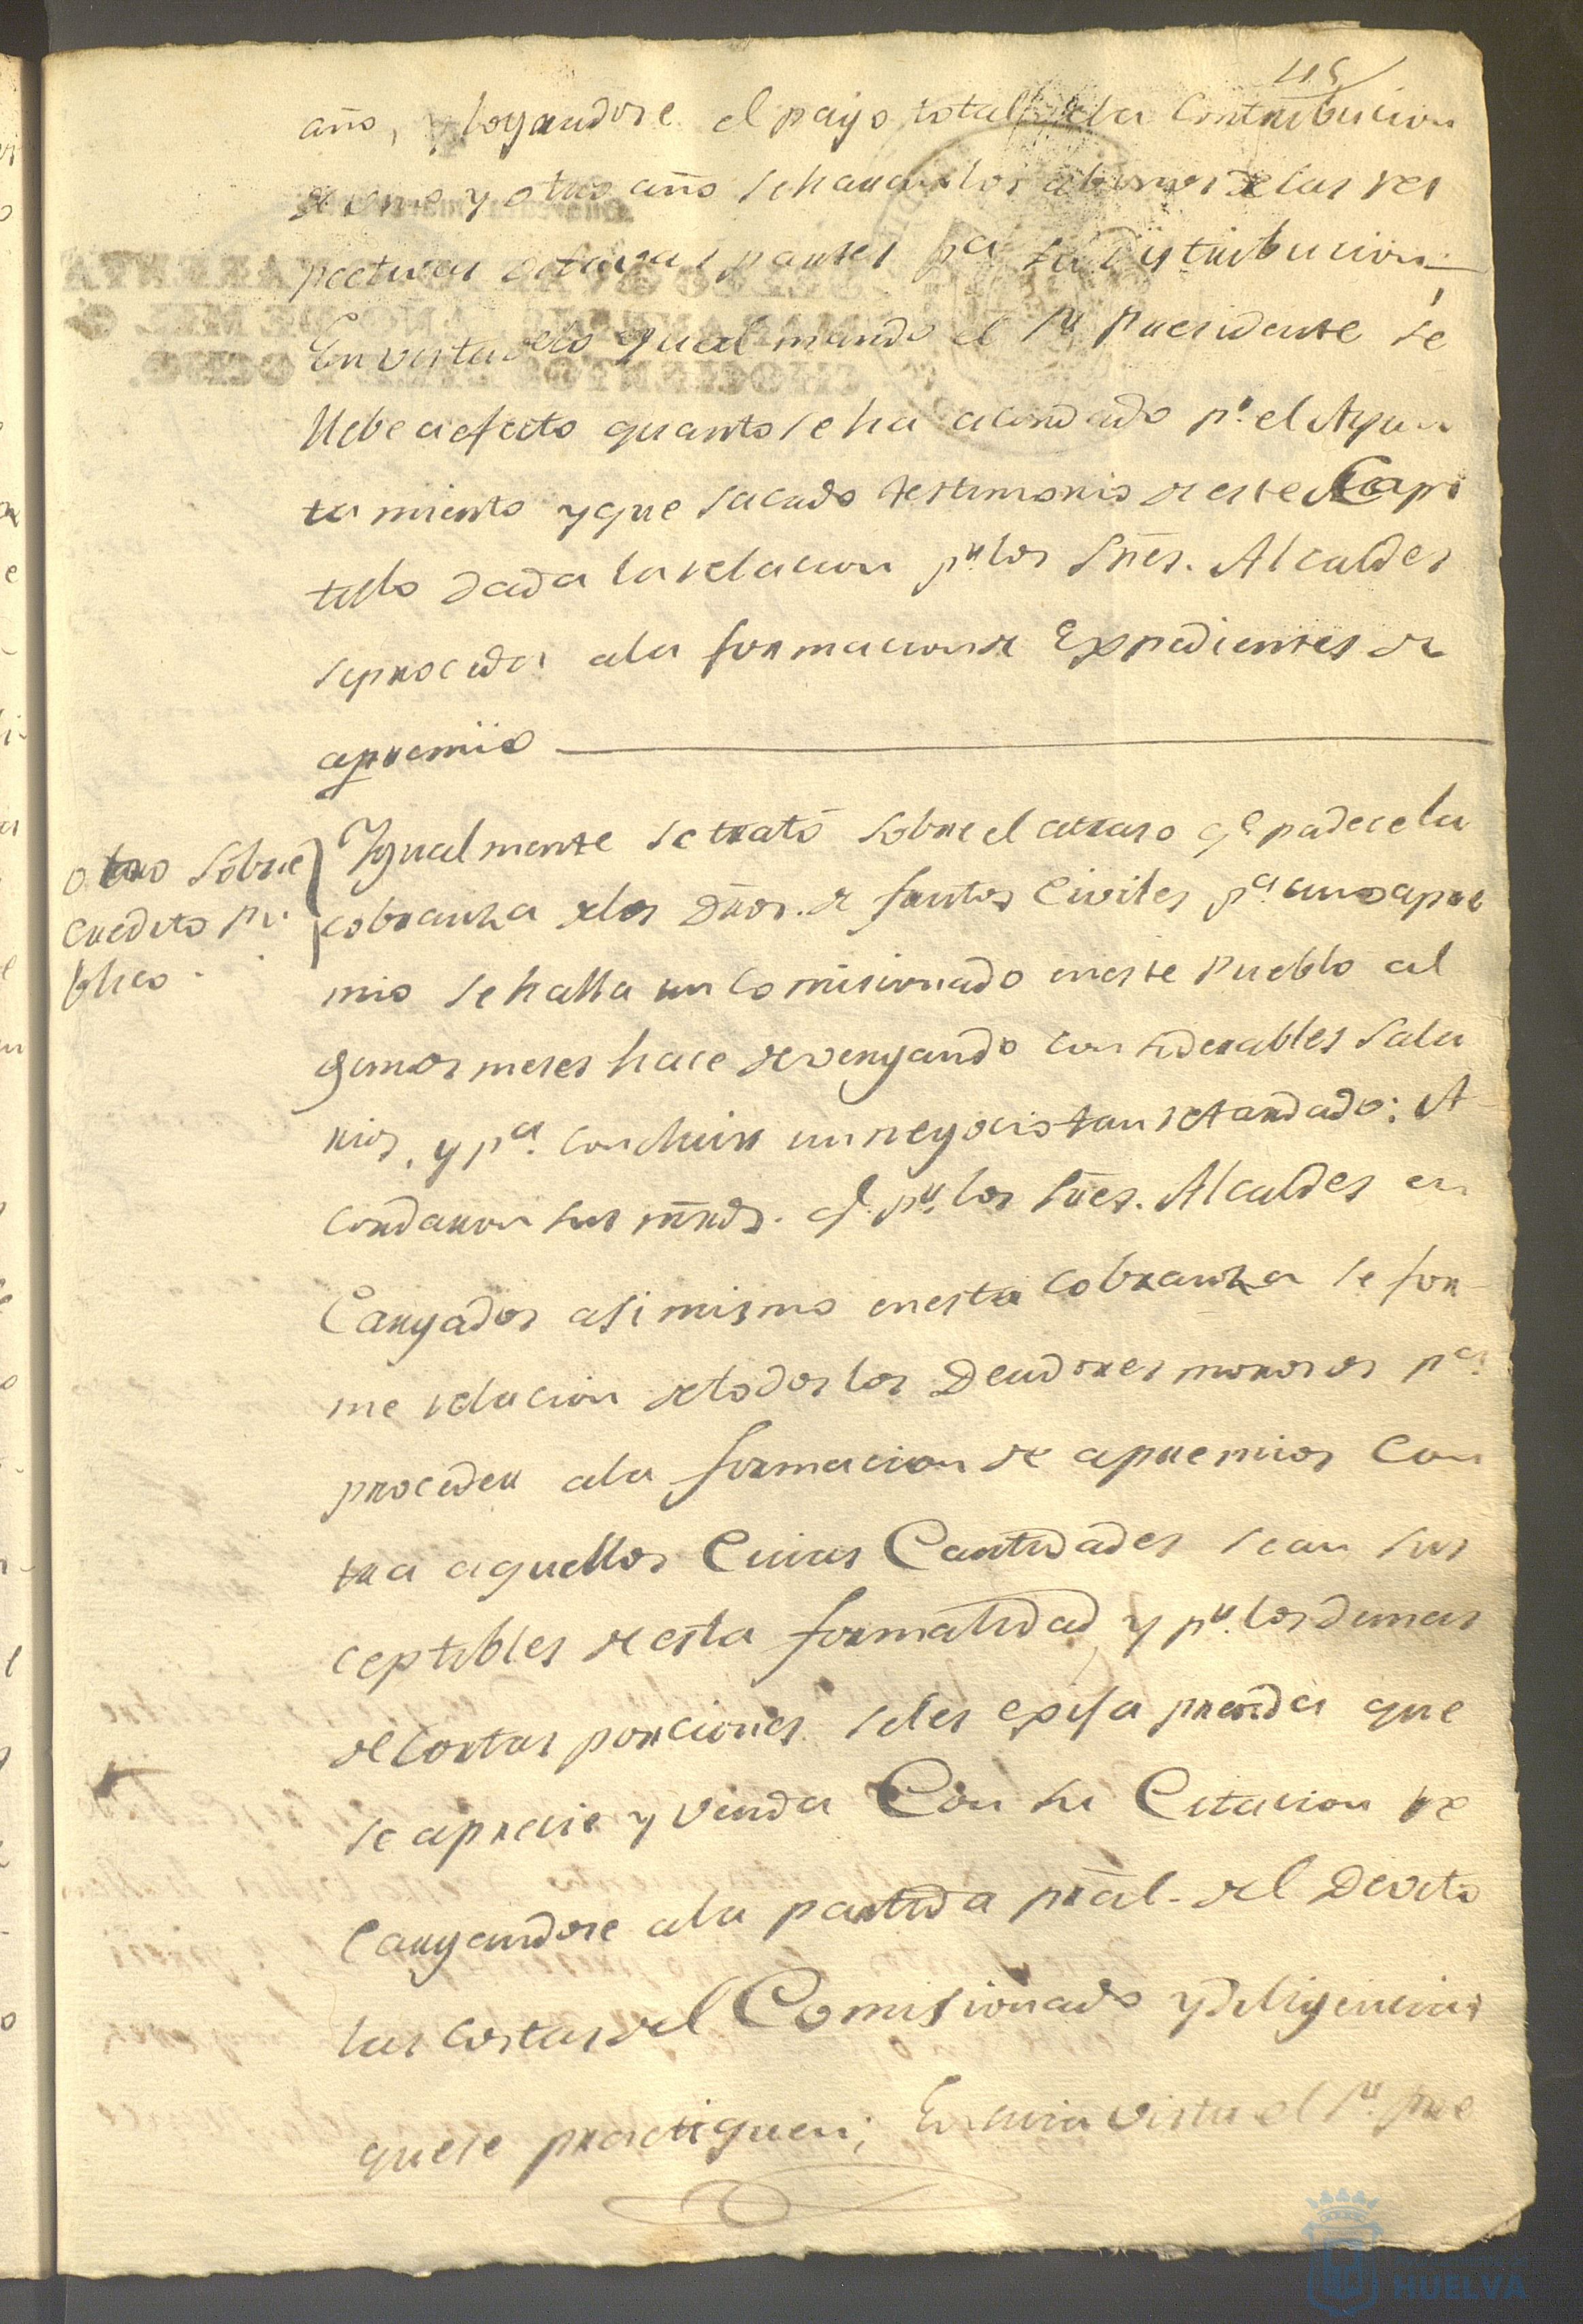 115
año, y lograndose el pago total dela Contribucion
de uno y otro año se haran los abonos delas res
pectivas octavas partes pa. su distribucion;
En vista delo qual mandó el Sr. Presidente se
llebe a efecto quanto se ha acordado pr. el Ayun
tamiento y que sacado testimonio de este Capi
tulo dada la relacion pr. los Sres. Alcaldes
se proceda ala formacion de Expedientes de
apremio
otro sobre
credito pu
blico.
Igualmente se trató sobre el atraso qe. padece la
cobranza delos Dros. de frutos Civiles pa. cuio apre
mio se halla un Comisionado en este Pueblo al
gunos meses hace devengando considerables sala
rios, y pa. concluir un negocio tan retardado: A
cordaron sus mrds. q. pr. los Sres. Alcaldes en
Cargados asi mismo en esta cobranza se for
me relacion de todos los Deudores morosos pa.
proceder ala formacion de apremios con
tra aquellos Cuias Cantidades sean sus
ceptibles de esta formalidad y pr. los demas
de cortas porciones se les exija prenda que
se aprecie y venda Con su Citacion re
cargandose ala partida pral. del Devito
las costas del Comisionado y diligencias
que se practiquen; En cuia vista el Sr. pre
HUELVA